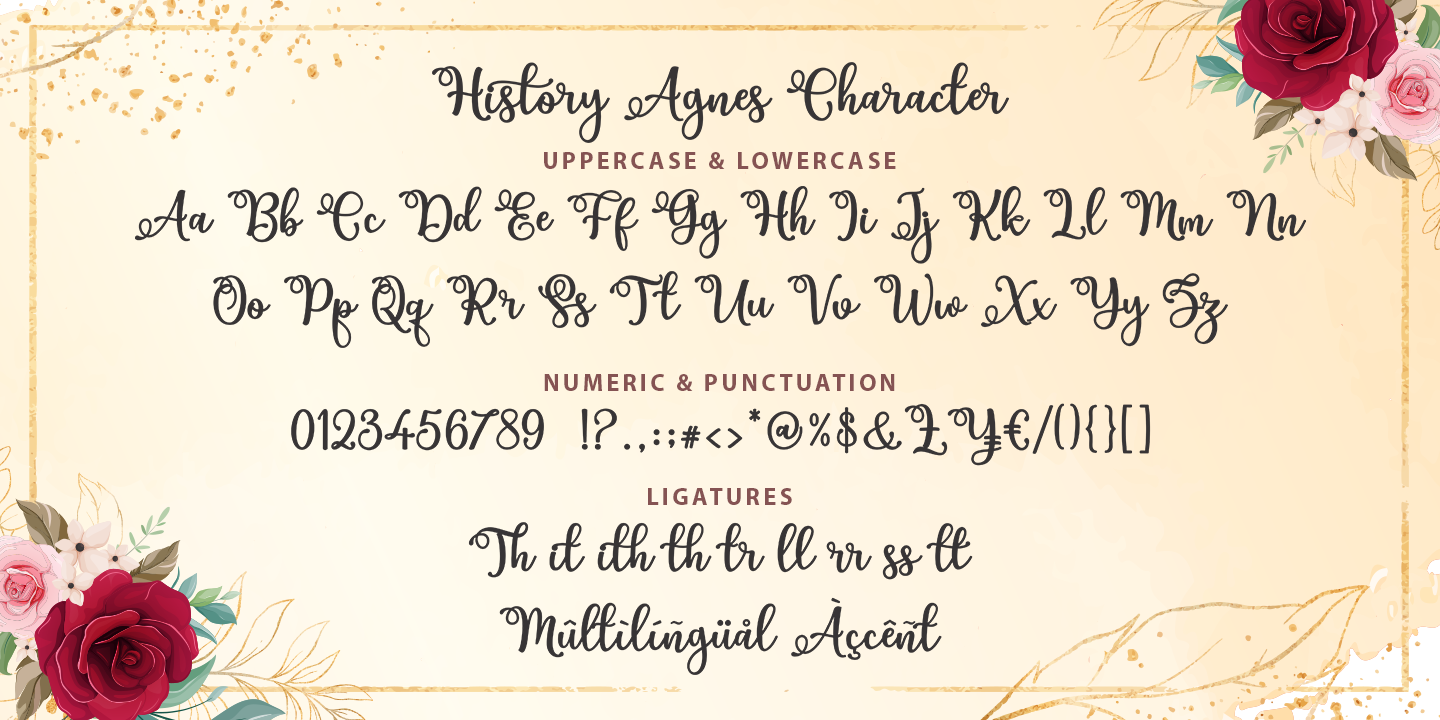 History Agnes Character
UPPERCASE & LOWERCASE
Aa Bb Cc Dd Ee Ff Gg Hh Ii Jj Kk Ll Mm Nn
Oo Pp Qq Rr Ss Tt Uu Vv Ww Xx Yy Zz
NUMERIC & PUNCTUATION
0123456789 !?.,:;#<>*@%$&£¥€/(){}[]
LIGATURES
Th it ith th tr ll rr ss tt
Mûltìlíñgüål Àççêñt